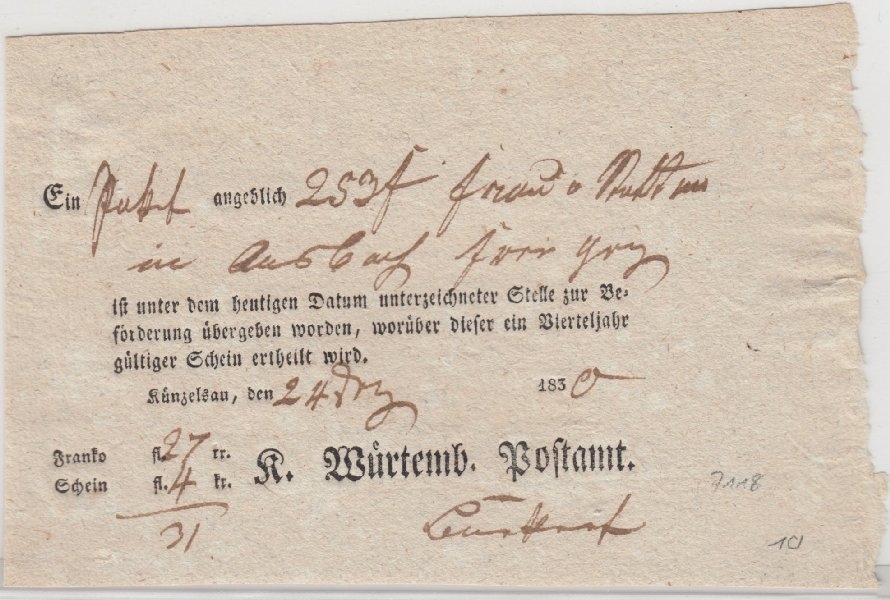 Ein Paket angeblich 253 f Frau v
in Ansbach frei
ist unter dem heutigen Datum unterzeichneter Stelle zur Be-
förderung übergeben worden, worüber dieser ein Vierteljahr
gültiger Schein ertheilt wird.
Künzelsau, den 24 Dez 1830
Franko fl. 27 kr.
Schein fl. 4 kr.
K. Würtemb. Postamt.
31
7118
10